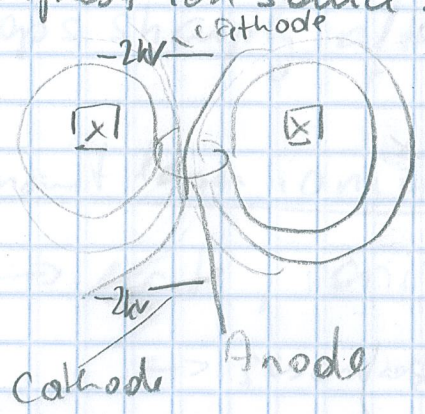 ion
cathode
-2kV
X X
-2kV
Anode
Cathode